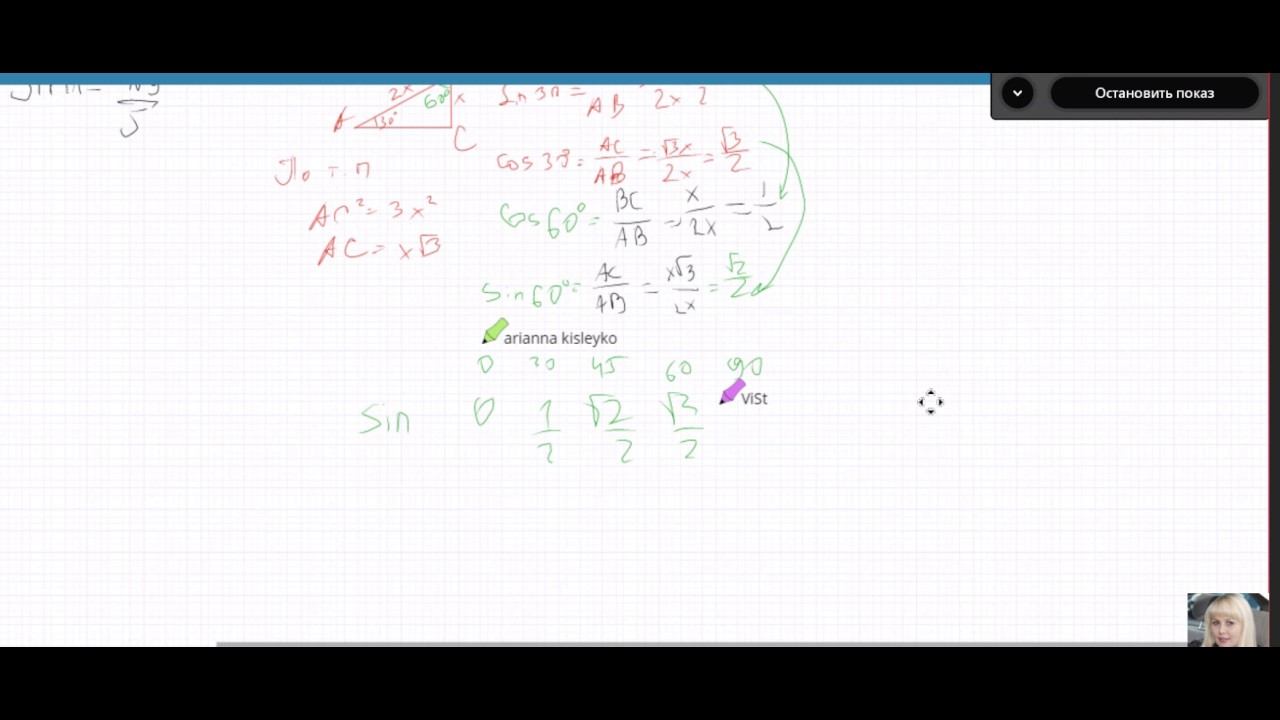 Остановить показ
2x 60° x
A 30°
C
sin 30 = AB 2x 2
По т. П
AC² = 3x²
AC = x√3
cos 30 = AC/AB = √3x/2x = √3/2
cos 60° = BC/AB = x/2x = 1/2
sin 60° = AC/AB = x√3/2x = √2/2
arianna kisleyko
0 30 45 60 90
ViSt
Sin 0 1/2 √2/2 √3/2